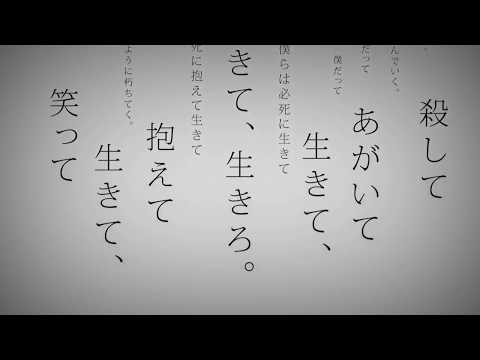 殺して
んでいく。
だって
あがいて
僕だって
生きて、
僕らは必死に生きて
きて、生きろ。
死に抱えて生きて
抱えて
ように朽ちてく。
生きて、
笑って